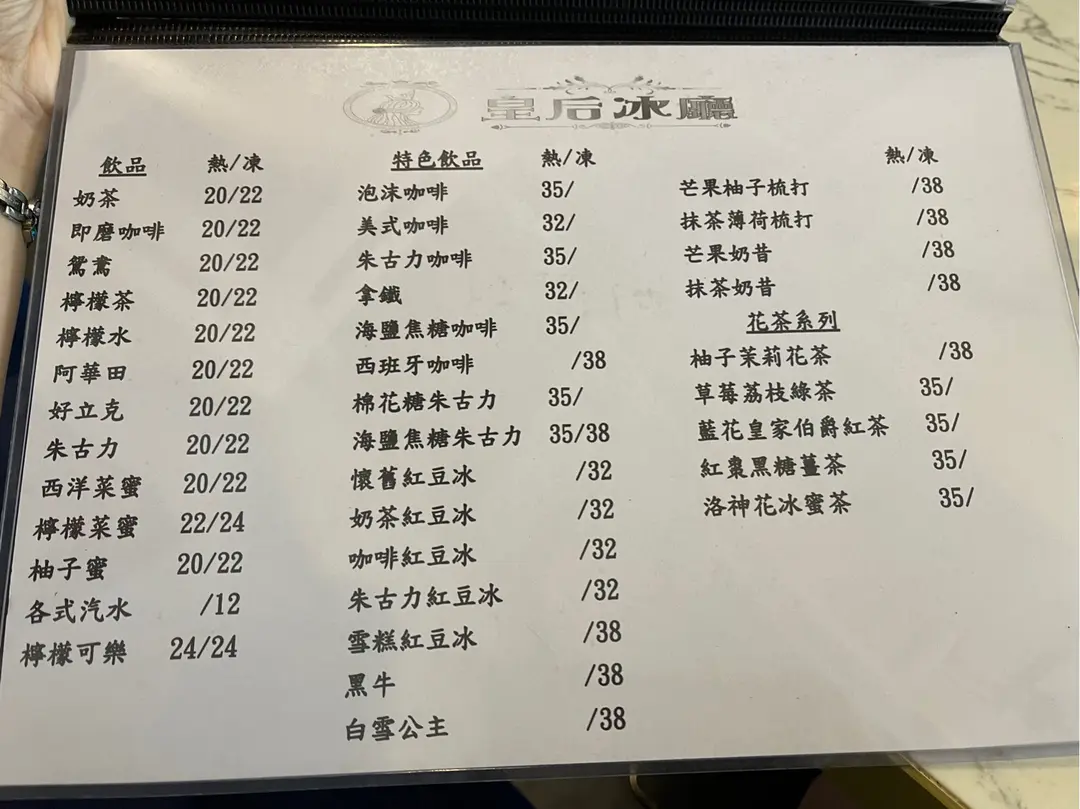 皇后冰廳
飲品 熱/凍
奶茶 20/22
即磨咖啡 20/22
鴛鴦 20/22
檸檬茶 20/22
檸檬水 20/22
阿華田 20/22
好立克 20/22
朱古力 20/22
西洋菜蜜 20/22
檸檬菜蜜 22/24
柚子蜜 20/22
各式汽水 /12
檸檬可樂 24/24
特色飲品 熱/凍
泡沫咖啡 35/
美式咖啡 32/
朱古力咖啡 35/
拿鐵 32/
海鹽焦糖咖啡 35/
西班牙咖啡 /38
棉花糖朱古力 35/
海鹽焦糖朱古力 35/38
懷舊紅豆冰 /32
奶茶紅豆冰 /32
咖啡紅豆冰 /32
朱古力紅豆冰 /32
雪糕紅豆冰 /38
黑牛 /38
白雪公主 /38
熱/凍
芒果柚子梳打 /38
抹茶薄荷梳打 /38
芒果奶昔 /38
抹茶奶昔 /38
花茶系列
柚子茉莉花茶 /38
草莓荔枝綠茶 35/
藍花皇家伯爵紅茶 35/
紅棗黑糖薑茶 35/
洛神花冰蜜茶 35/